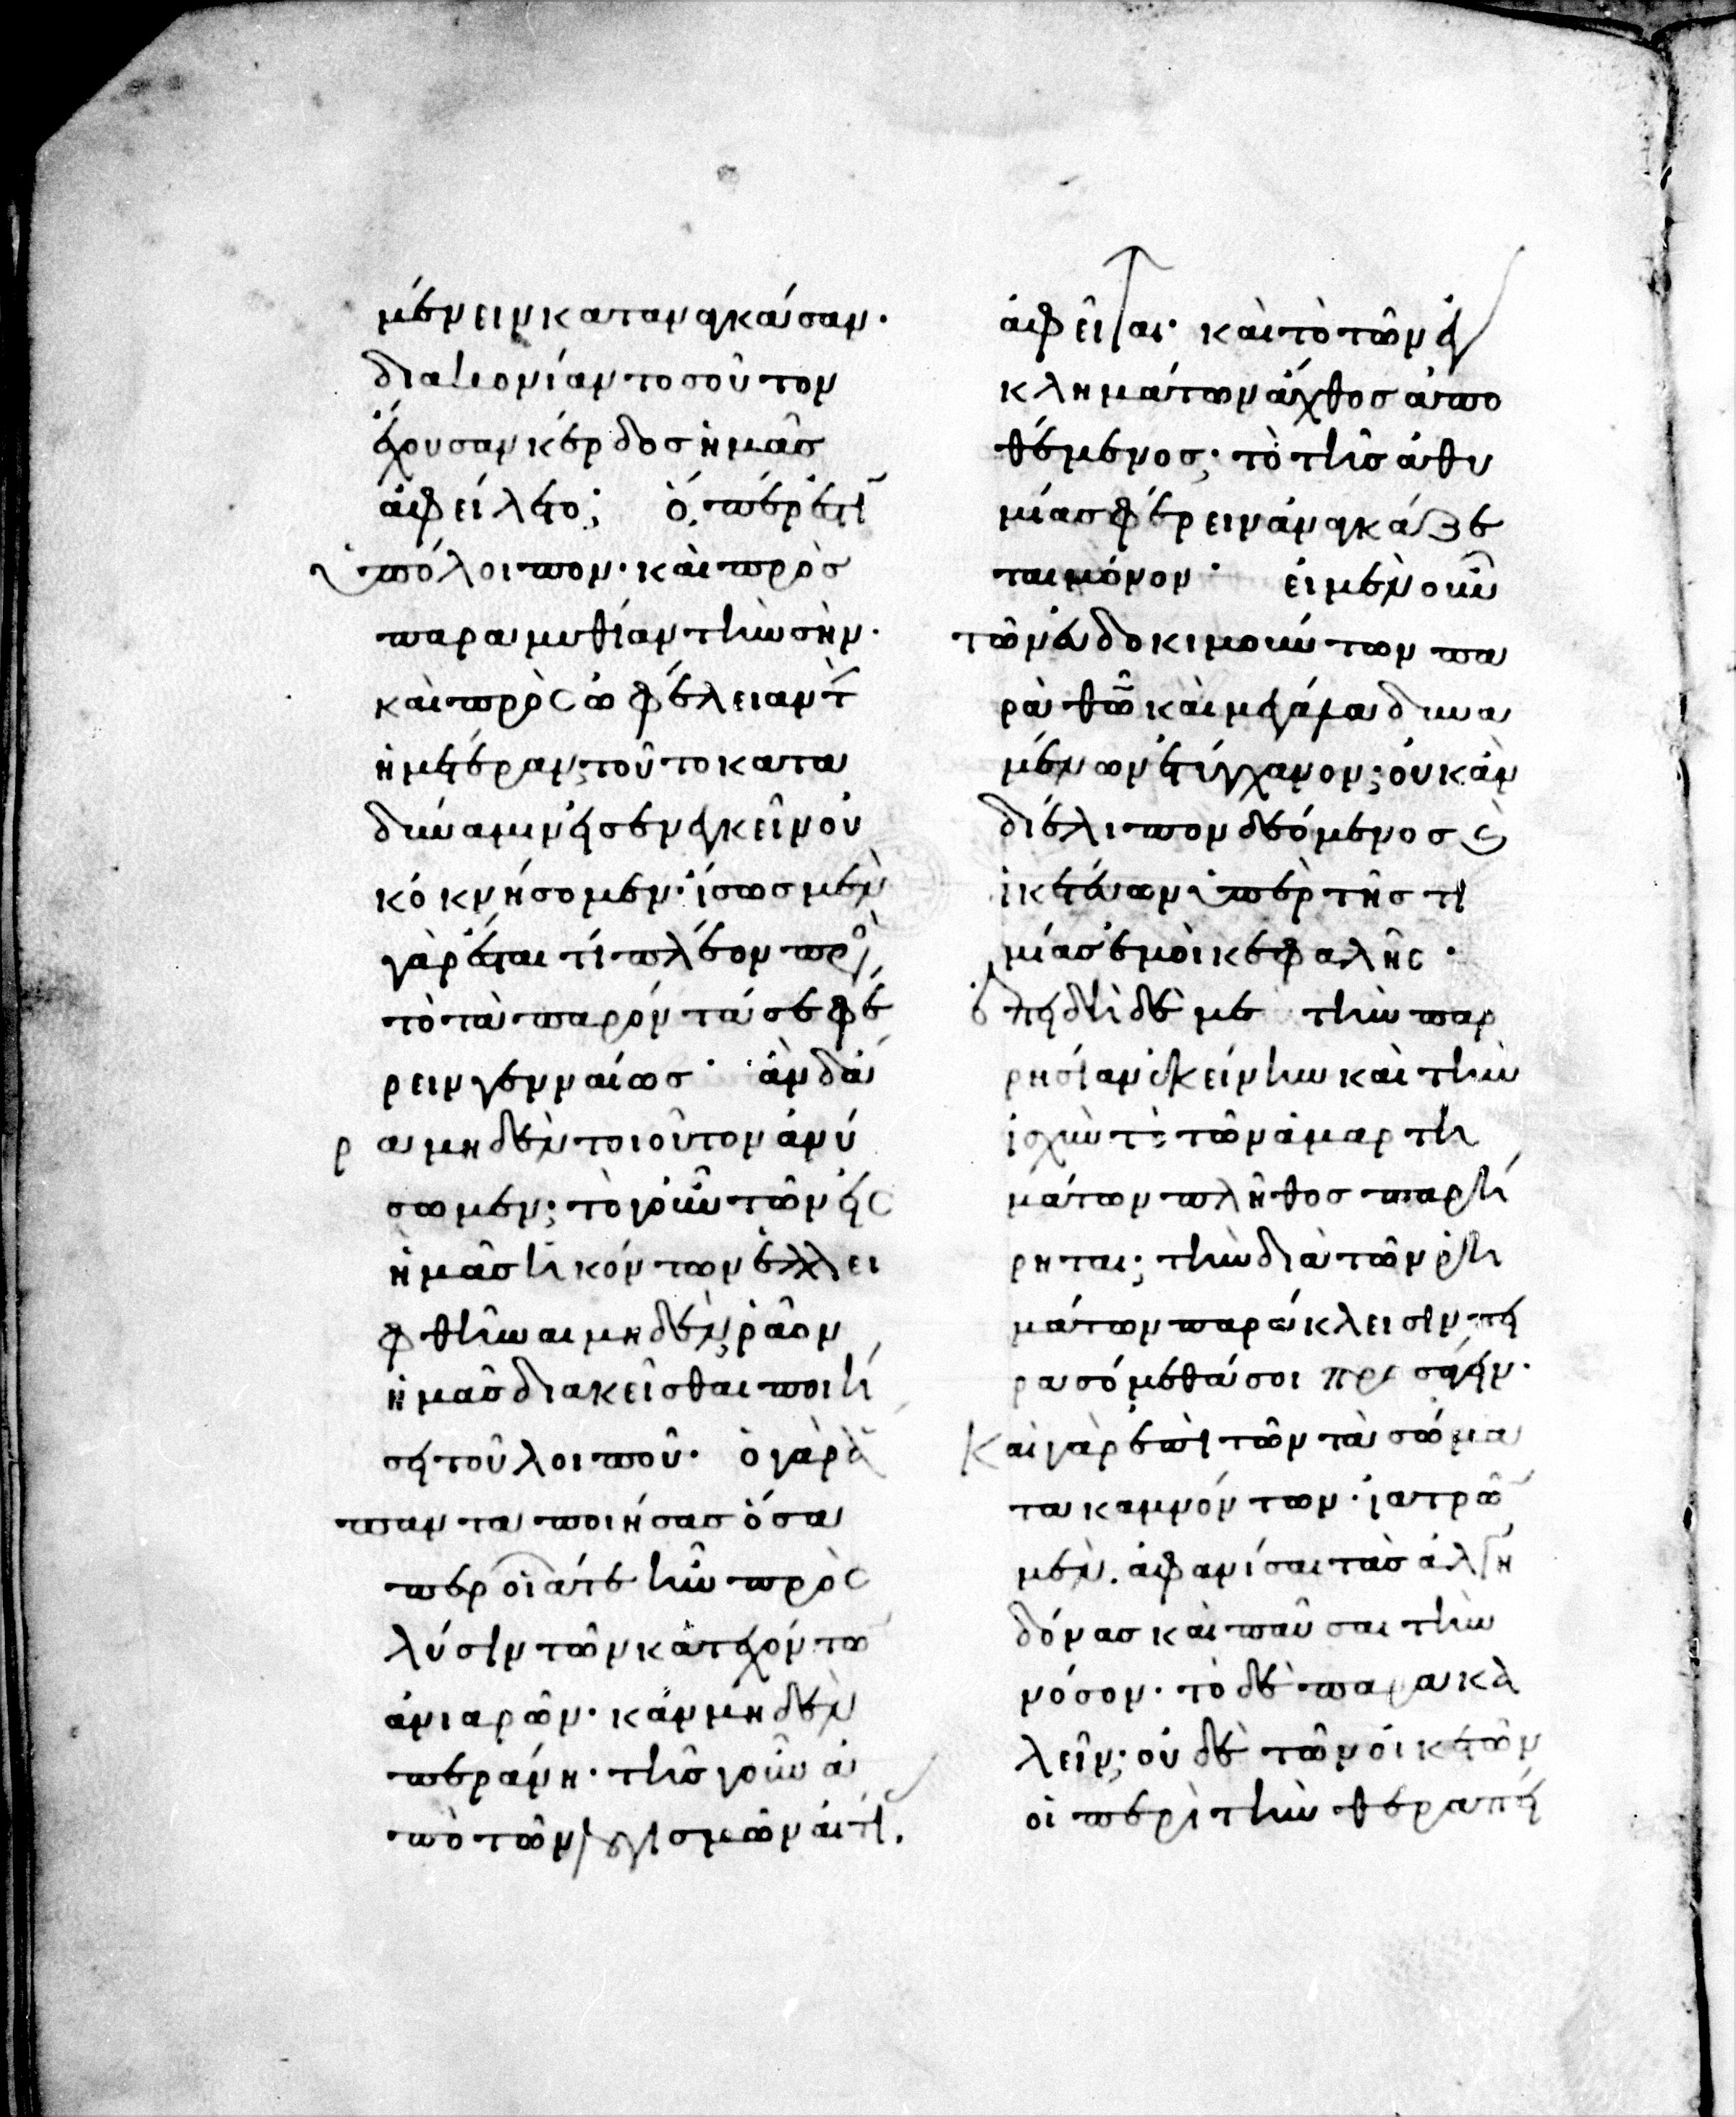 μένειν καταναγκάσαν·
διαγωνίαν τοσοῦτον
ἔχουσαν κέρδος ἡμᾶς
ἀφείλετο; ὅπερ ἐστῒ
ὑπόλοιπον· καὶ πρὸς
παραμυθίαν τὴν σὴν·
καὶ πρὸς ὠφέλειαν τ
ἡμετέραν, τοῦτο κατα
δύναμιν εἰσενεγκεῖν οὐ
κ ὀκνήσομεν· ἴσως μὲν
γὰρ ἔσται τί πλέον πρὸς
τὸ τὰ παρόντά σε φέ
ρειν γενναίως· ἂν δἄ
ρα μηδὲν τοιοῦτον ἀνύ
σωμεν; τὸ γοῦν τῶν εἰς
ἡμᾶς ἡκόντων ἐλλει
φθῆναι μηδὲν, ῥᾶον
ἡμᾶς διακεῖσθαι ποιή
σει τοῦ λοιποῦ· ὁ γὰρ ἅ
παντα ποιήσας ὅσα
περ οἷάτε ἦν πρὸς
λύσιν τῶν κατεχόντω
ἀνιαρῶν· κἂν μηδὲν
περάνη· τῆς γοῦν ἀ
πὸ τῶν λογισμῶν αἰτί.
ἀφεῖται· καὶ τὸ τῶν ἐγ
κλημάτων ἄχθος ἀπο
θέμενος; τὸ τῆς ἀθυ
μίας φέρειν ἀναγκάζε
ται μόνον· εἰ μὲν οὖν
τῶν εὐδοκιμούντων πα
ρὰ θῶ καὶ μεγάλα δυνα
μένων ἐτύγχανον; οὐκ ἂν
διέλιπον δεόμενος ϗ
ἱκετεύων ὑπὲρ τῆς τι
μίας ἐμοὶ κεφαλῆς·
ἐπειδὴ δέ με τὴν παρ
ρησίαν ἐκείνην καὶ τὴν
ἰσχὺν τὸ τῶν ἁμαρτη
μάτων πλῆθος παρῄ
ρηται; τὴν διὰ τῶν ῥη
μάτων παράκλεισιν πει
ρασόμεθά σοι προσάγειν·
Καὶ γὰρ ἐπὶ τῶν τὰ σώμα
τα καμνόντων· ἰατρῶ
μὲν. ἀφανίσαι τὰς ἀλγη
δόνας καὶ παῦσαι τὴν
νόσον· τὸ δὲ παρακα
λεῖν; οὐδὲ τῶν οἰκετῶν
οἱ περὶ τὴν θεραπεί